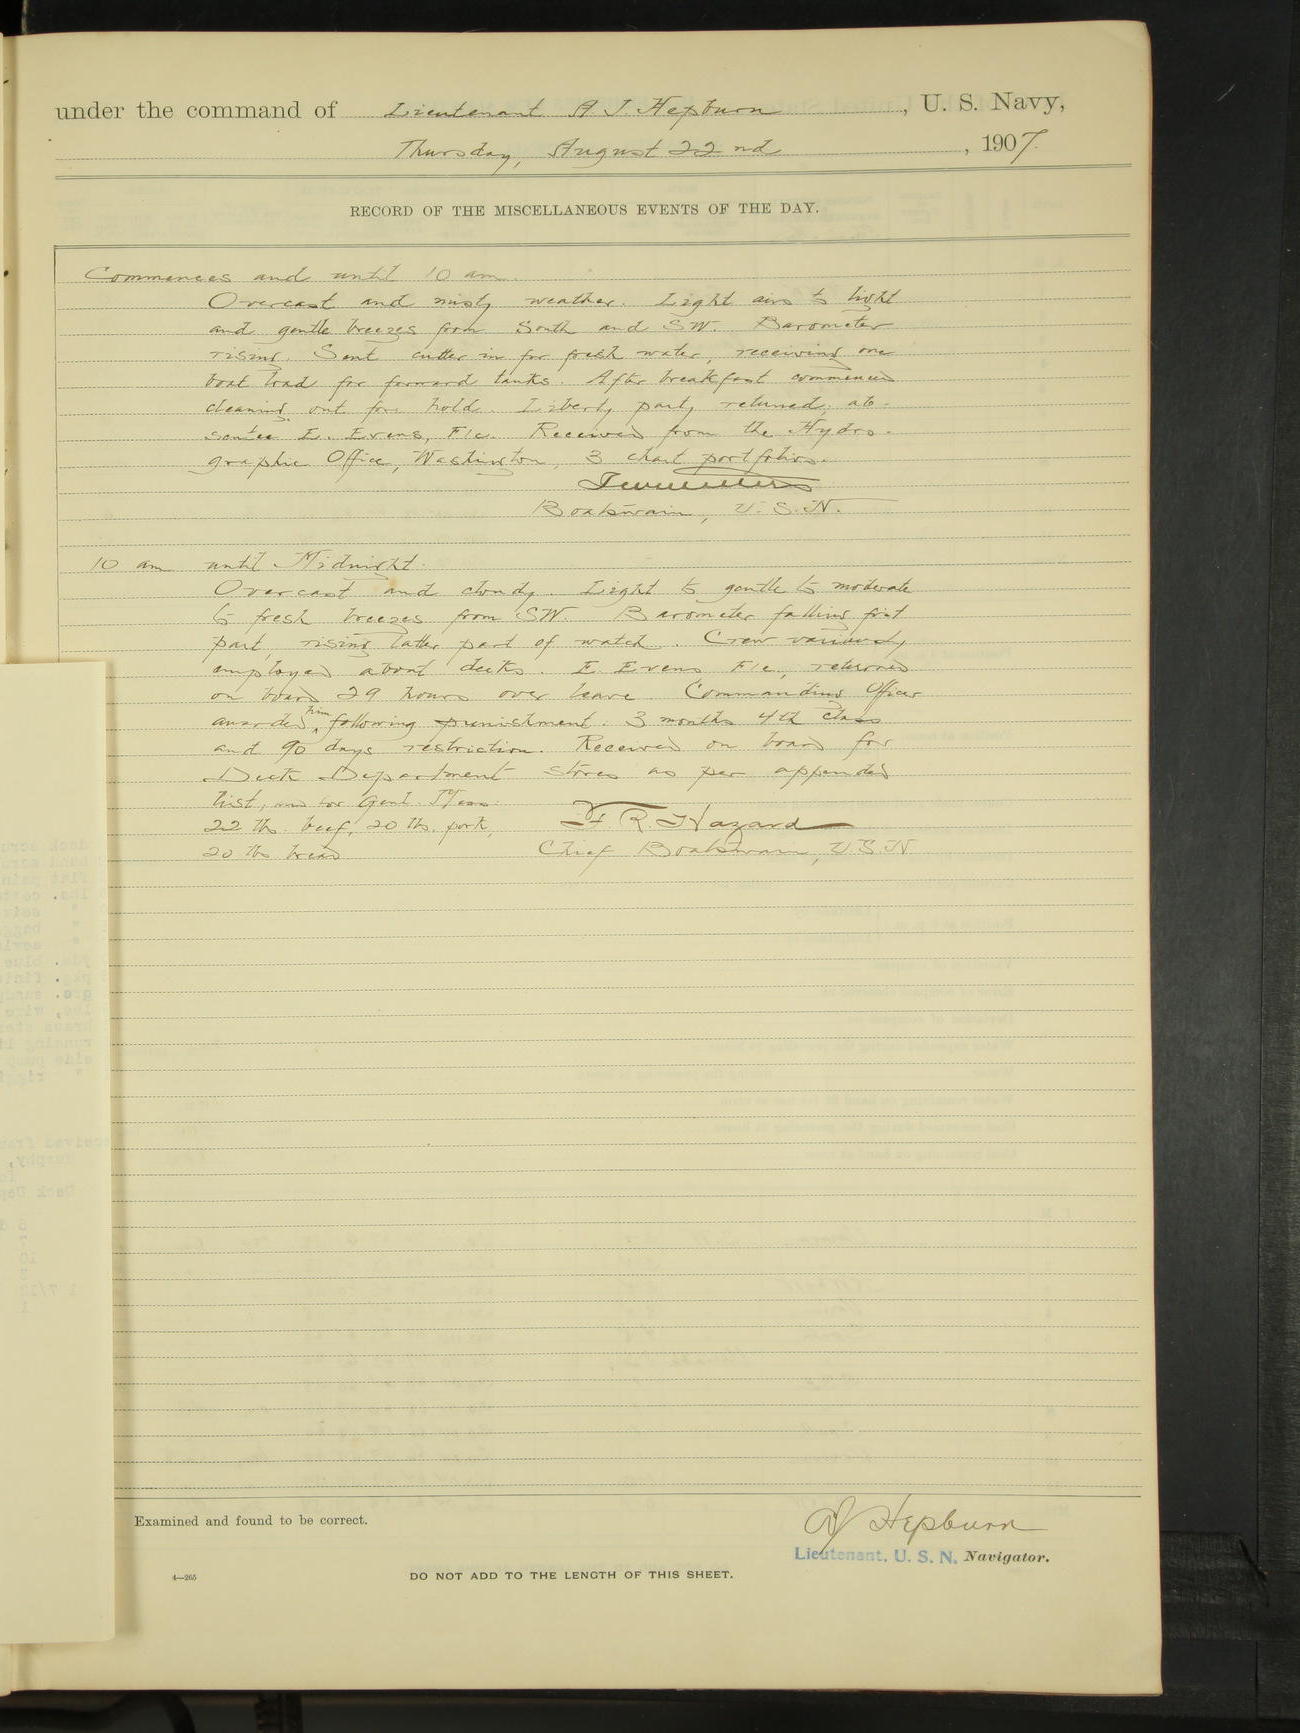 under the command of Lieutenant A J. Hepburn, U. S. Navy,
Thursday, August 22 nd, 1907.
RECORD OF THE MISCELLANEOUS EVENTS OF THE DAY.
Commences and until 10 am.
Overcast and misty weather. Light airs to light
and gentle breezes from South and SW. Barometer
rising. Sent cutter in for fresh water, receiving one
boat load for forward tanks. After breakfast commenced
cleaning out fore hold. Liberty party returned; ab-
sentee E. Evens, F1c. Received from the Hydro-
graphic Office, Washington, 3 chart portfolios.
Boatswain, U.S.N.
10 am until Midnight.
Overcast and cloudy. Light to gentle to moderate
to fresh breezes from SW. Barometer falling first
part, rising latter part of watch. Crew variously
employed about decks. E. Evens, F1c, returned
on board 29 hours over leave. Commanding Officer
awarded him following punishment. 3 months 4th class
and 90 days restriction. Received on board for
Deck Department stores as per appended
list, and for Genl. Mess:
22 lbs. beef, 20 lbs. pork, F. R. Hazard
20 lbs bread Chief Boatswain, U.S.N
Examined and found to be correct.
A J Hepburn
Lieutenant, U. S. N. Navigator.
4—265
DO NOT ADD TO THE LENGTH OF THIS SHEET.